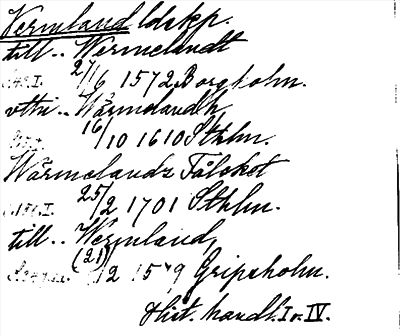 Vermland ldskp.
till .. Wermelandt
27/6 1572 Borgholm.
uthi .. Wärmelandh
16/10 1610 Sthlm.
Wärmelandz Tålckt
25/2 1701 Sthlm.
till .. Wermland,
(21)/12 15 9 Gripsholm.
Hist. handl. I o. IV.